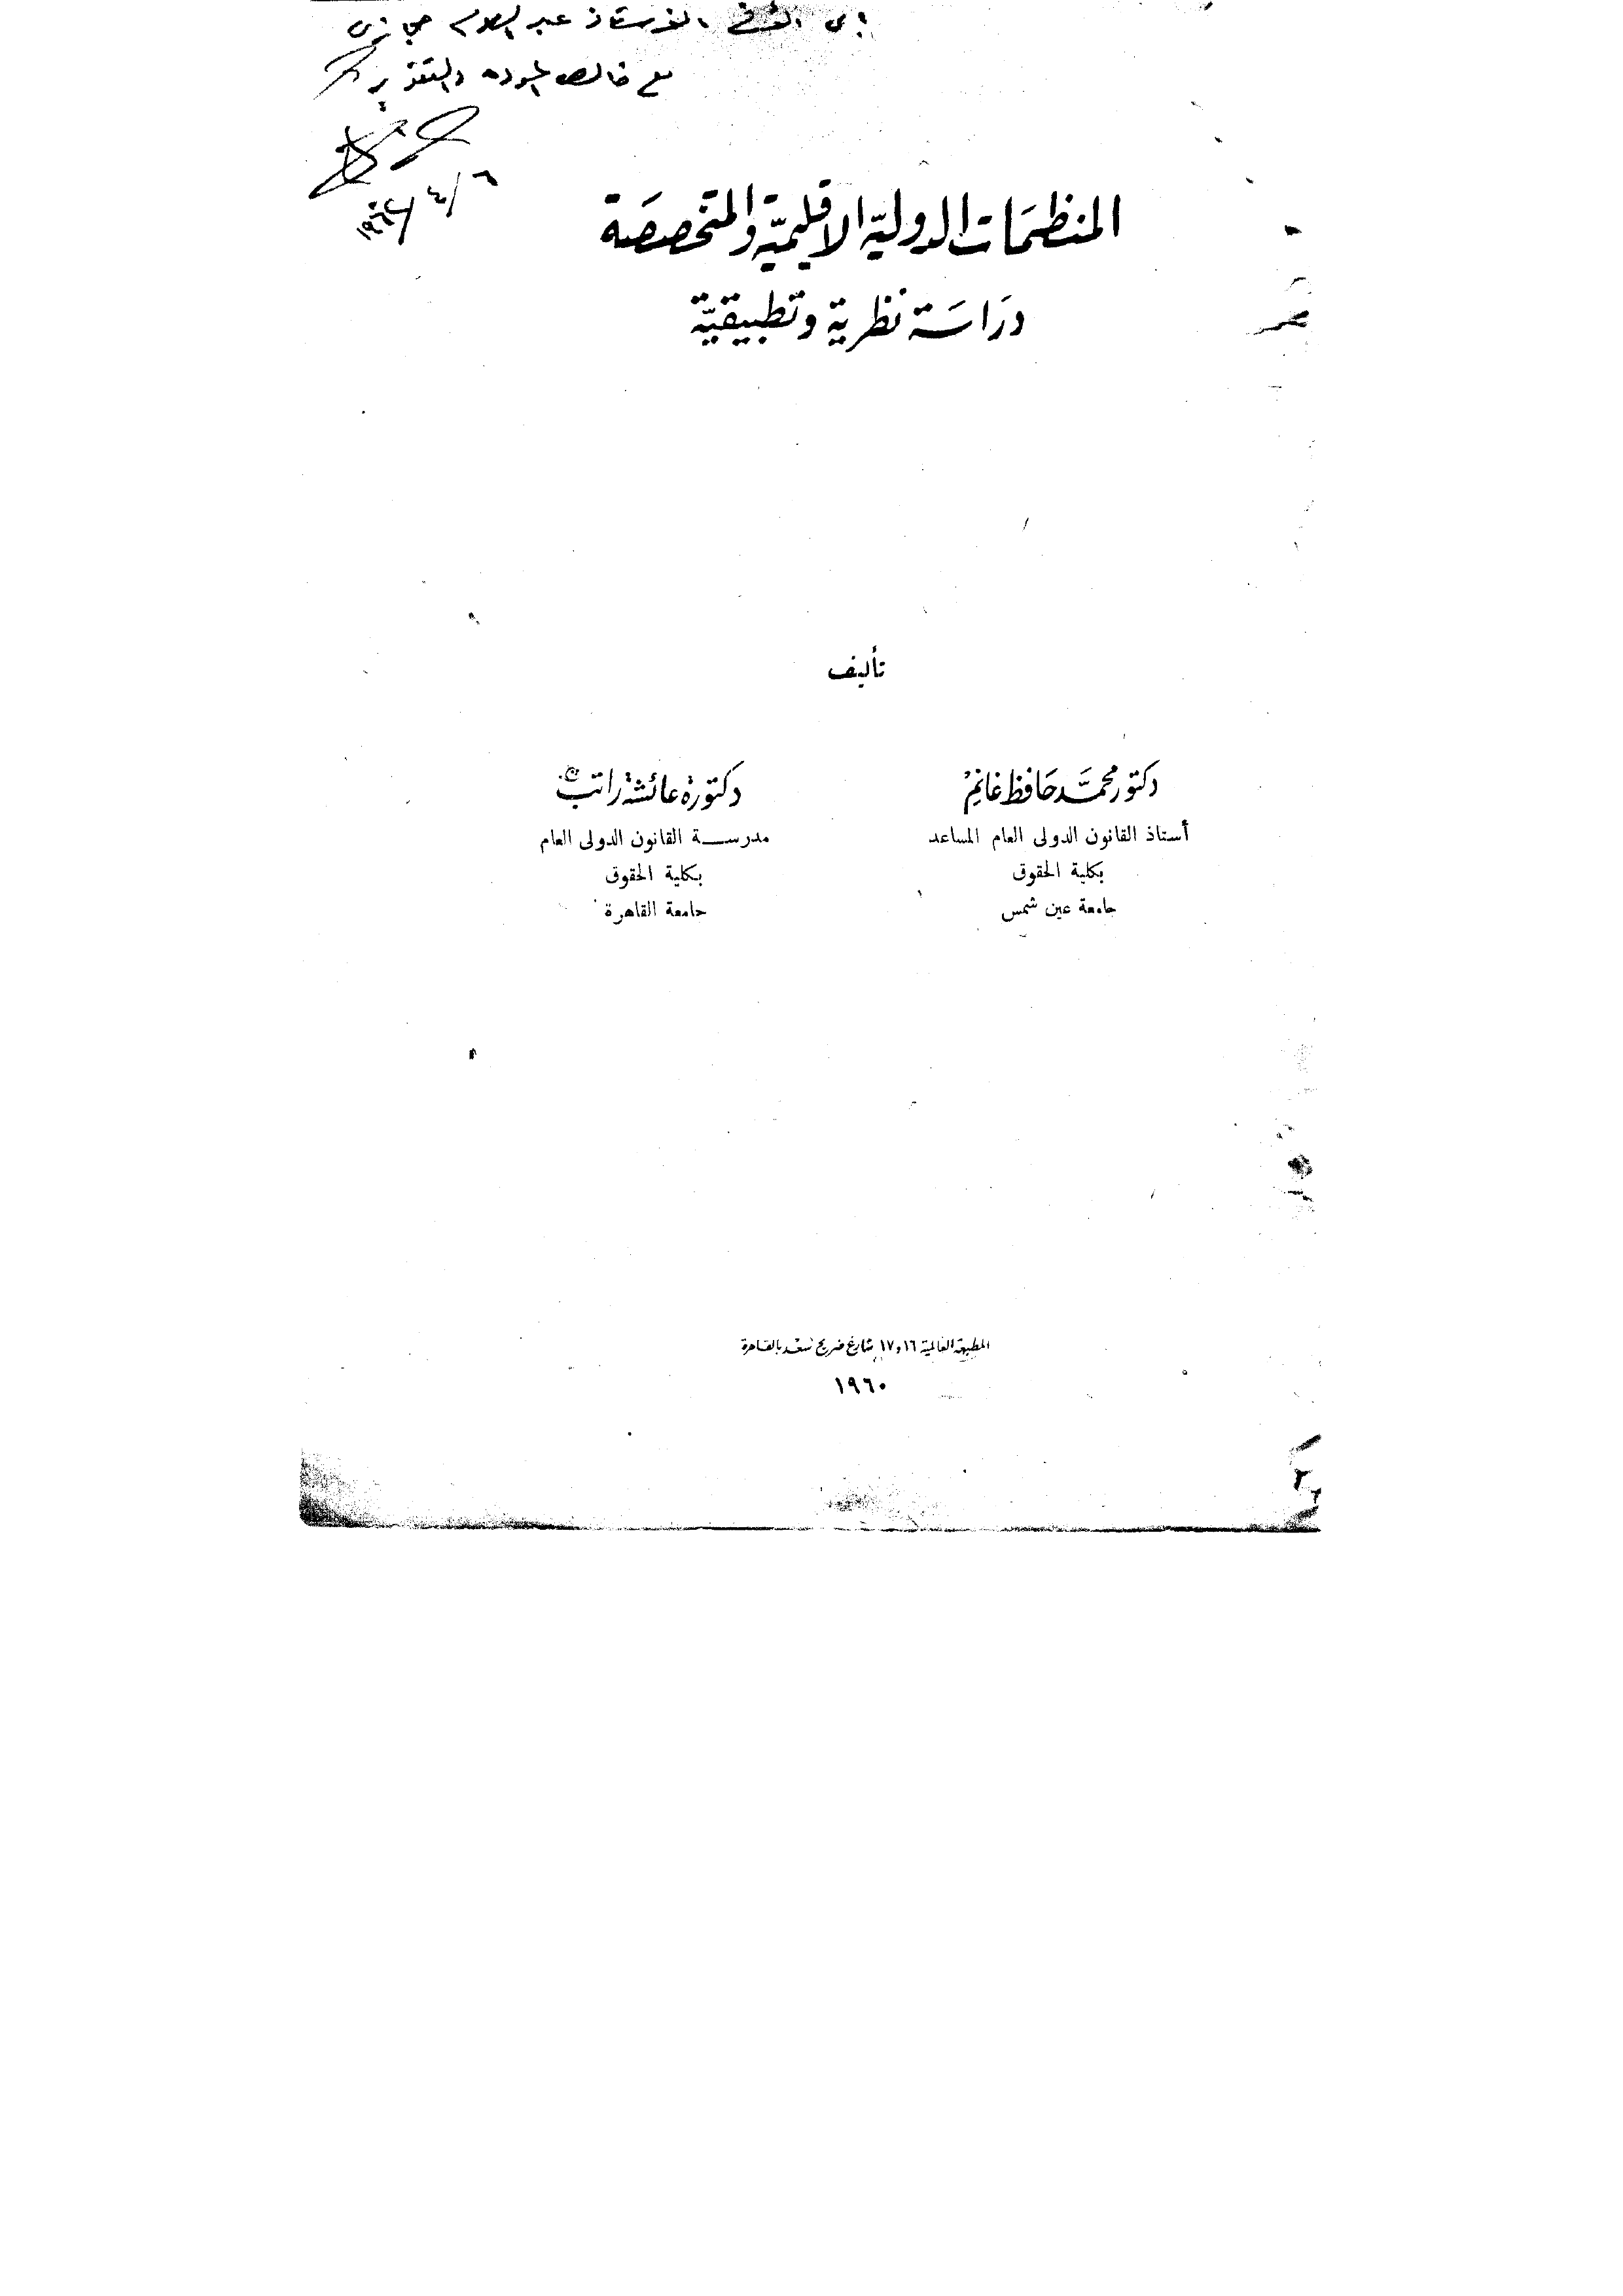 إلى الأخ الأستاذ عبد السلام حجازى
مع خالص المودة والتقدير
٦/٤/١٩٦٢
المنظمات الدولية الاقليمية والمتخصصة
دراسة نظرية وتطبيقية
تأليف
دكتور محمد حافظ غانم
أستاذ القانون الدولى العام المساعد
بكلية الحقوق
جامعة عين شمس
دكتورة عائشة راتب
مدرســـة القانون الدولى العام
بكلية الحقوق
جامعة القاهرة
المطبعة العالمية ١٦ و ١٧ شارع ضريح سعد بالقاهرة
١٩٦٠